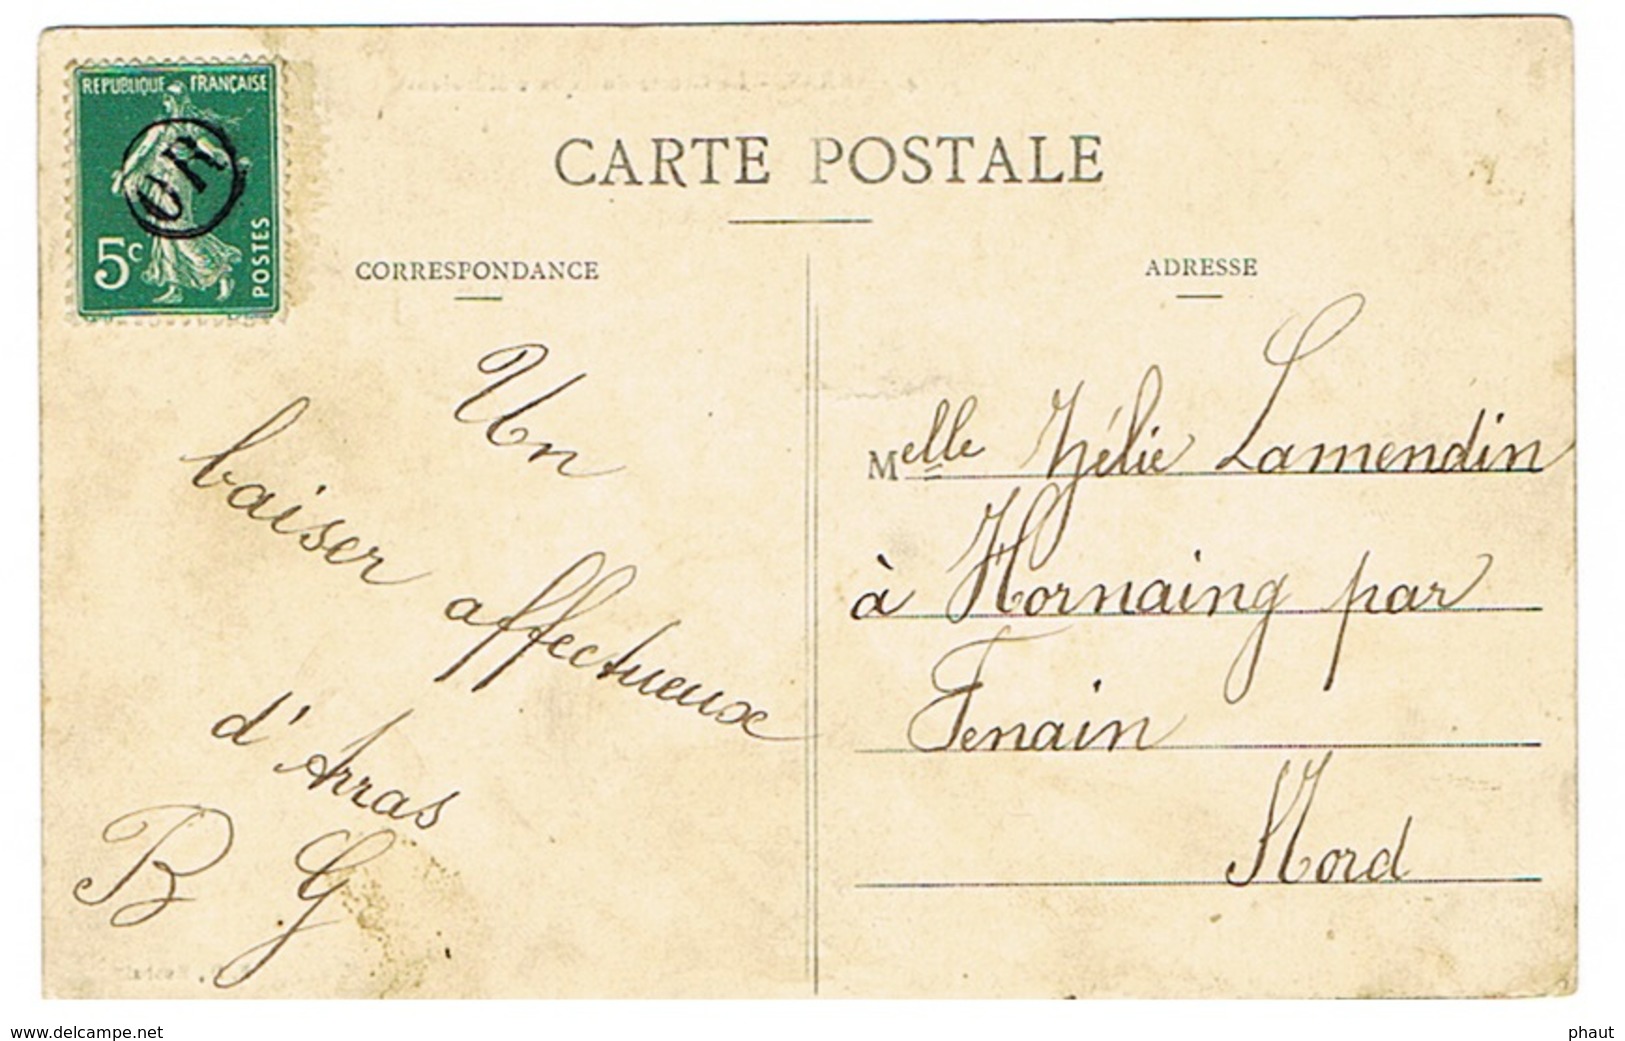 REPUBLIQUE FRANÇAISE
OR
5c
POSTES
CARTE POSTALE
CORRESPONDANCE
ADRESSE
Un
baiser affectueux
d'Arras
B G
Melle Zélie Lamendin
à Hornaing par
Fenain
Nord
www.delcampe.net
phaut